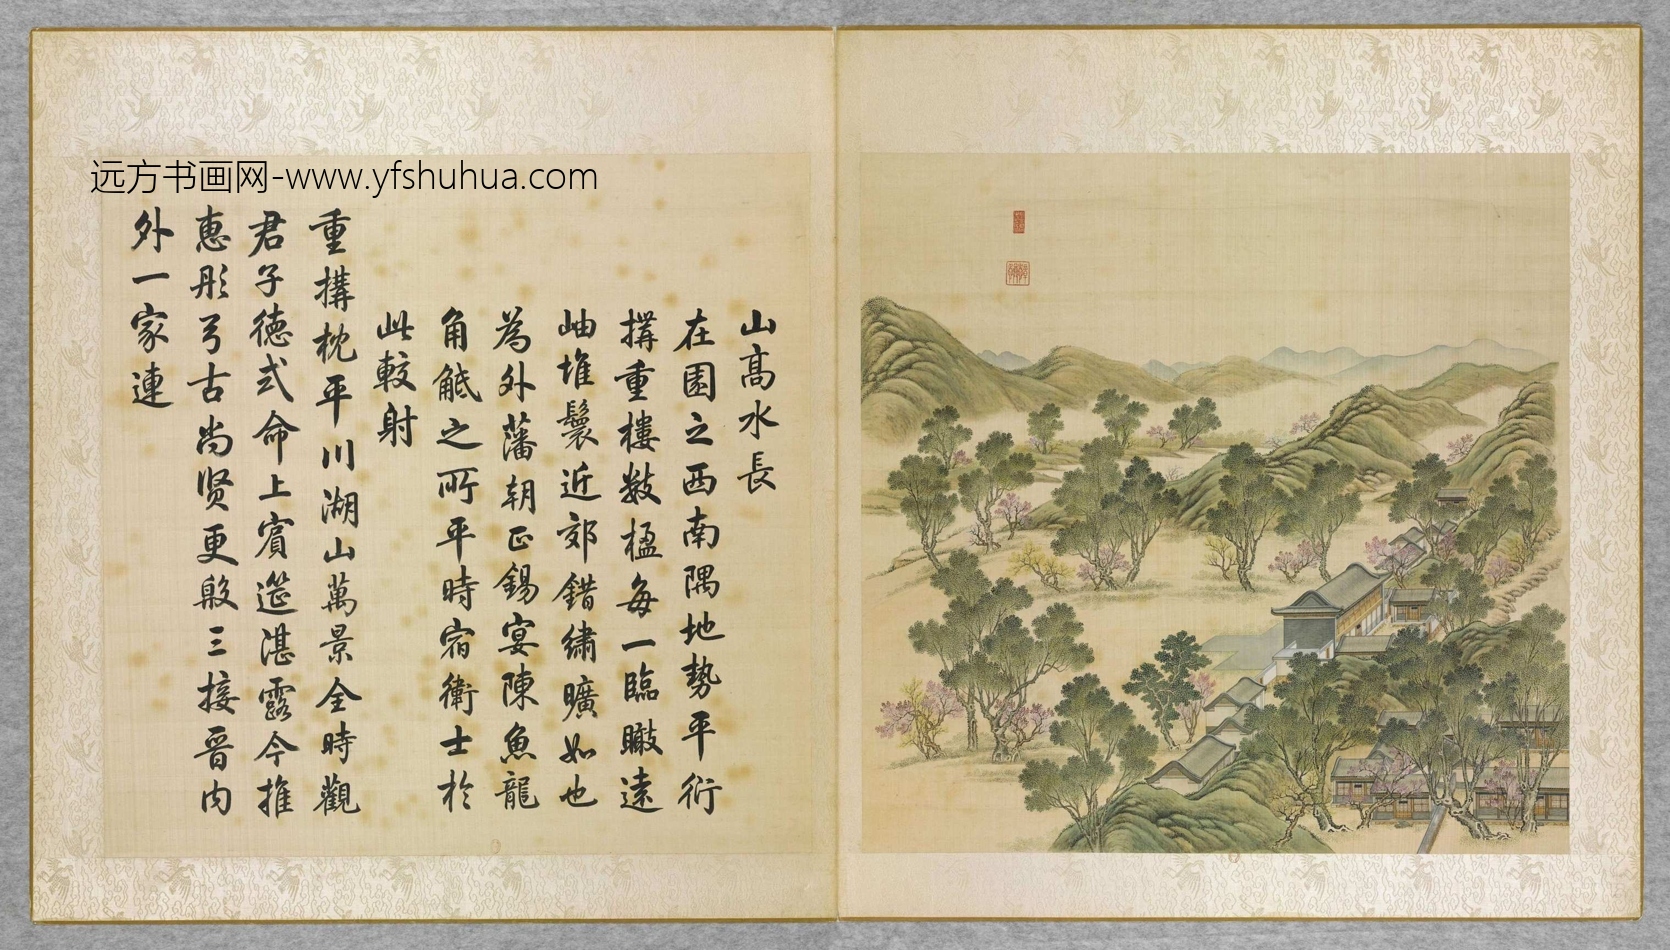 远方书画网-www.yfshuhua.com
山高水長
在園之西南隅地勢平衍
搆重樓數楹每一臨瞰遠
岫堆鬟近郊錯繡曠如也
為外藩朝正錫宴陳魚龍
角觝之所平時宿衛士於
此較射
重搆枕平川湖山萬景全時觀
君子德式命上賓筵湛露今推
惠彤弓古尚賢更殷三接晉内
外一家連